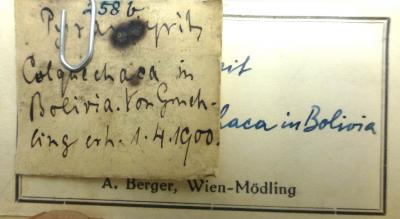 258b
Colquechaca in
Bolivia. Von Gmeh-
ling erh. 1.4.1900.
it
aca in Bolivia
A. Berger, Wien-Mödling